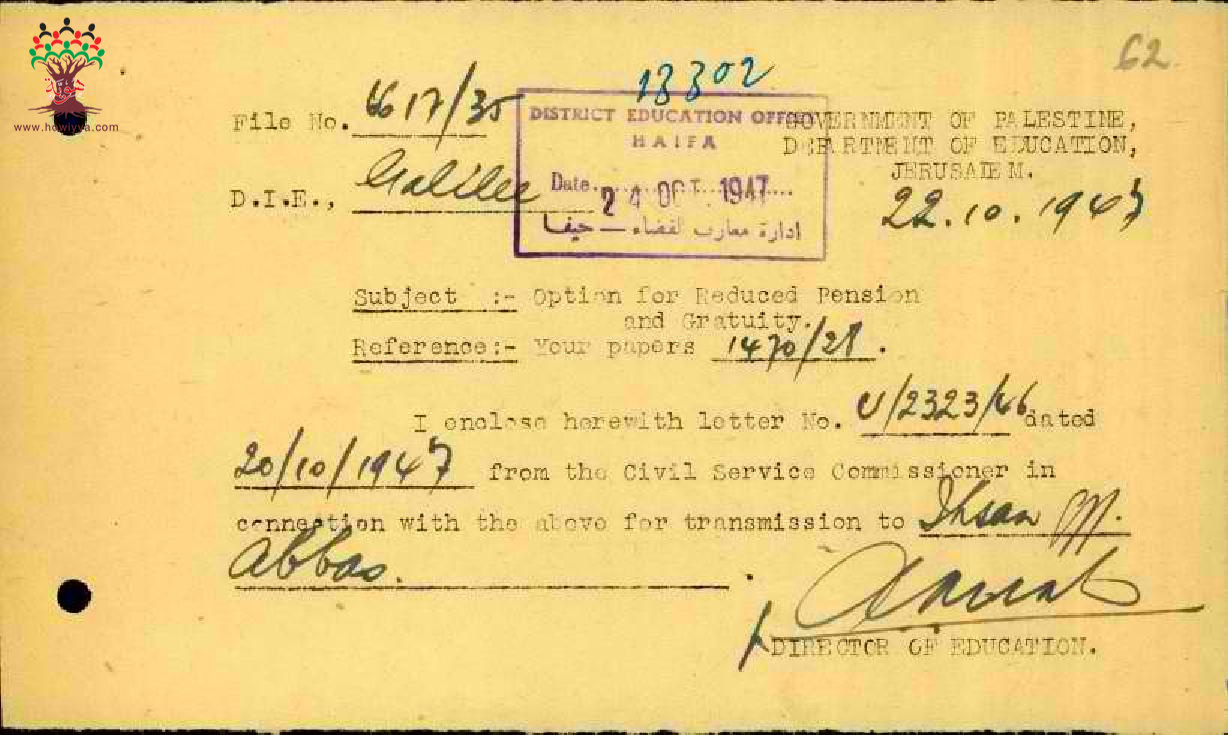 62
13302
www.howiyya.com
File No. 4617/35
GOVERNMENT OF PALESTINE,
DEPARTMENT OF EDUCATION,
JERUSALEM.
22.10.1947
D.I.E., Galilee
DISTRICT EDUCATION OFFICE
HAIFA
Date. 24 OCT. 1947
ادارة معارف لقضاء — حيفا
Subject :- Option for Reduced Pension
and Gratuity.
Reference:- Your papers 1470/28.
I enclose herewith letter No. U/2323/46 dated
20/10/1947 from the Civil Service Commissioner in
connection with the above for transmission to Ihsan Eff.
Abbas.
DIRECTOR OF EDUCATION.